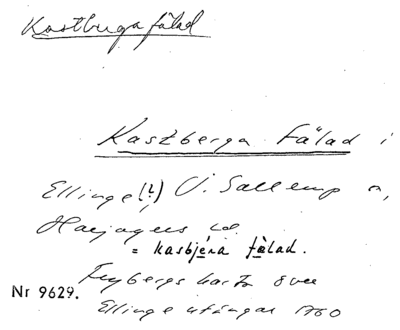 Kastberga fälad
Kastberga Fälad i
Ellinge (?) V. Sallerup s,
Harjagers hd.
= kasbjéra fälad.
Frybergs karta över
Nr 9629.
Ellinge utängar 1760